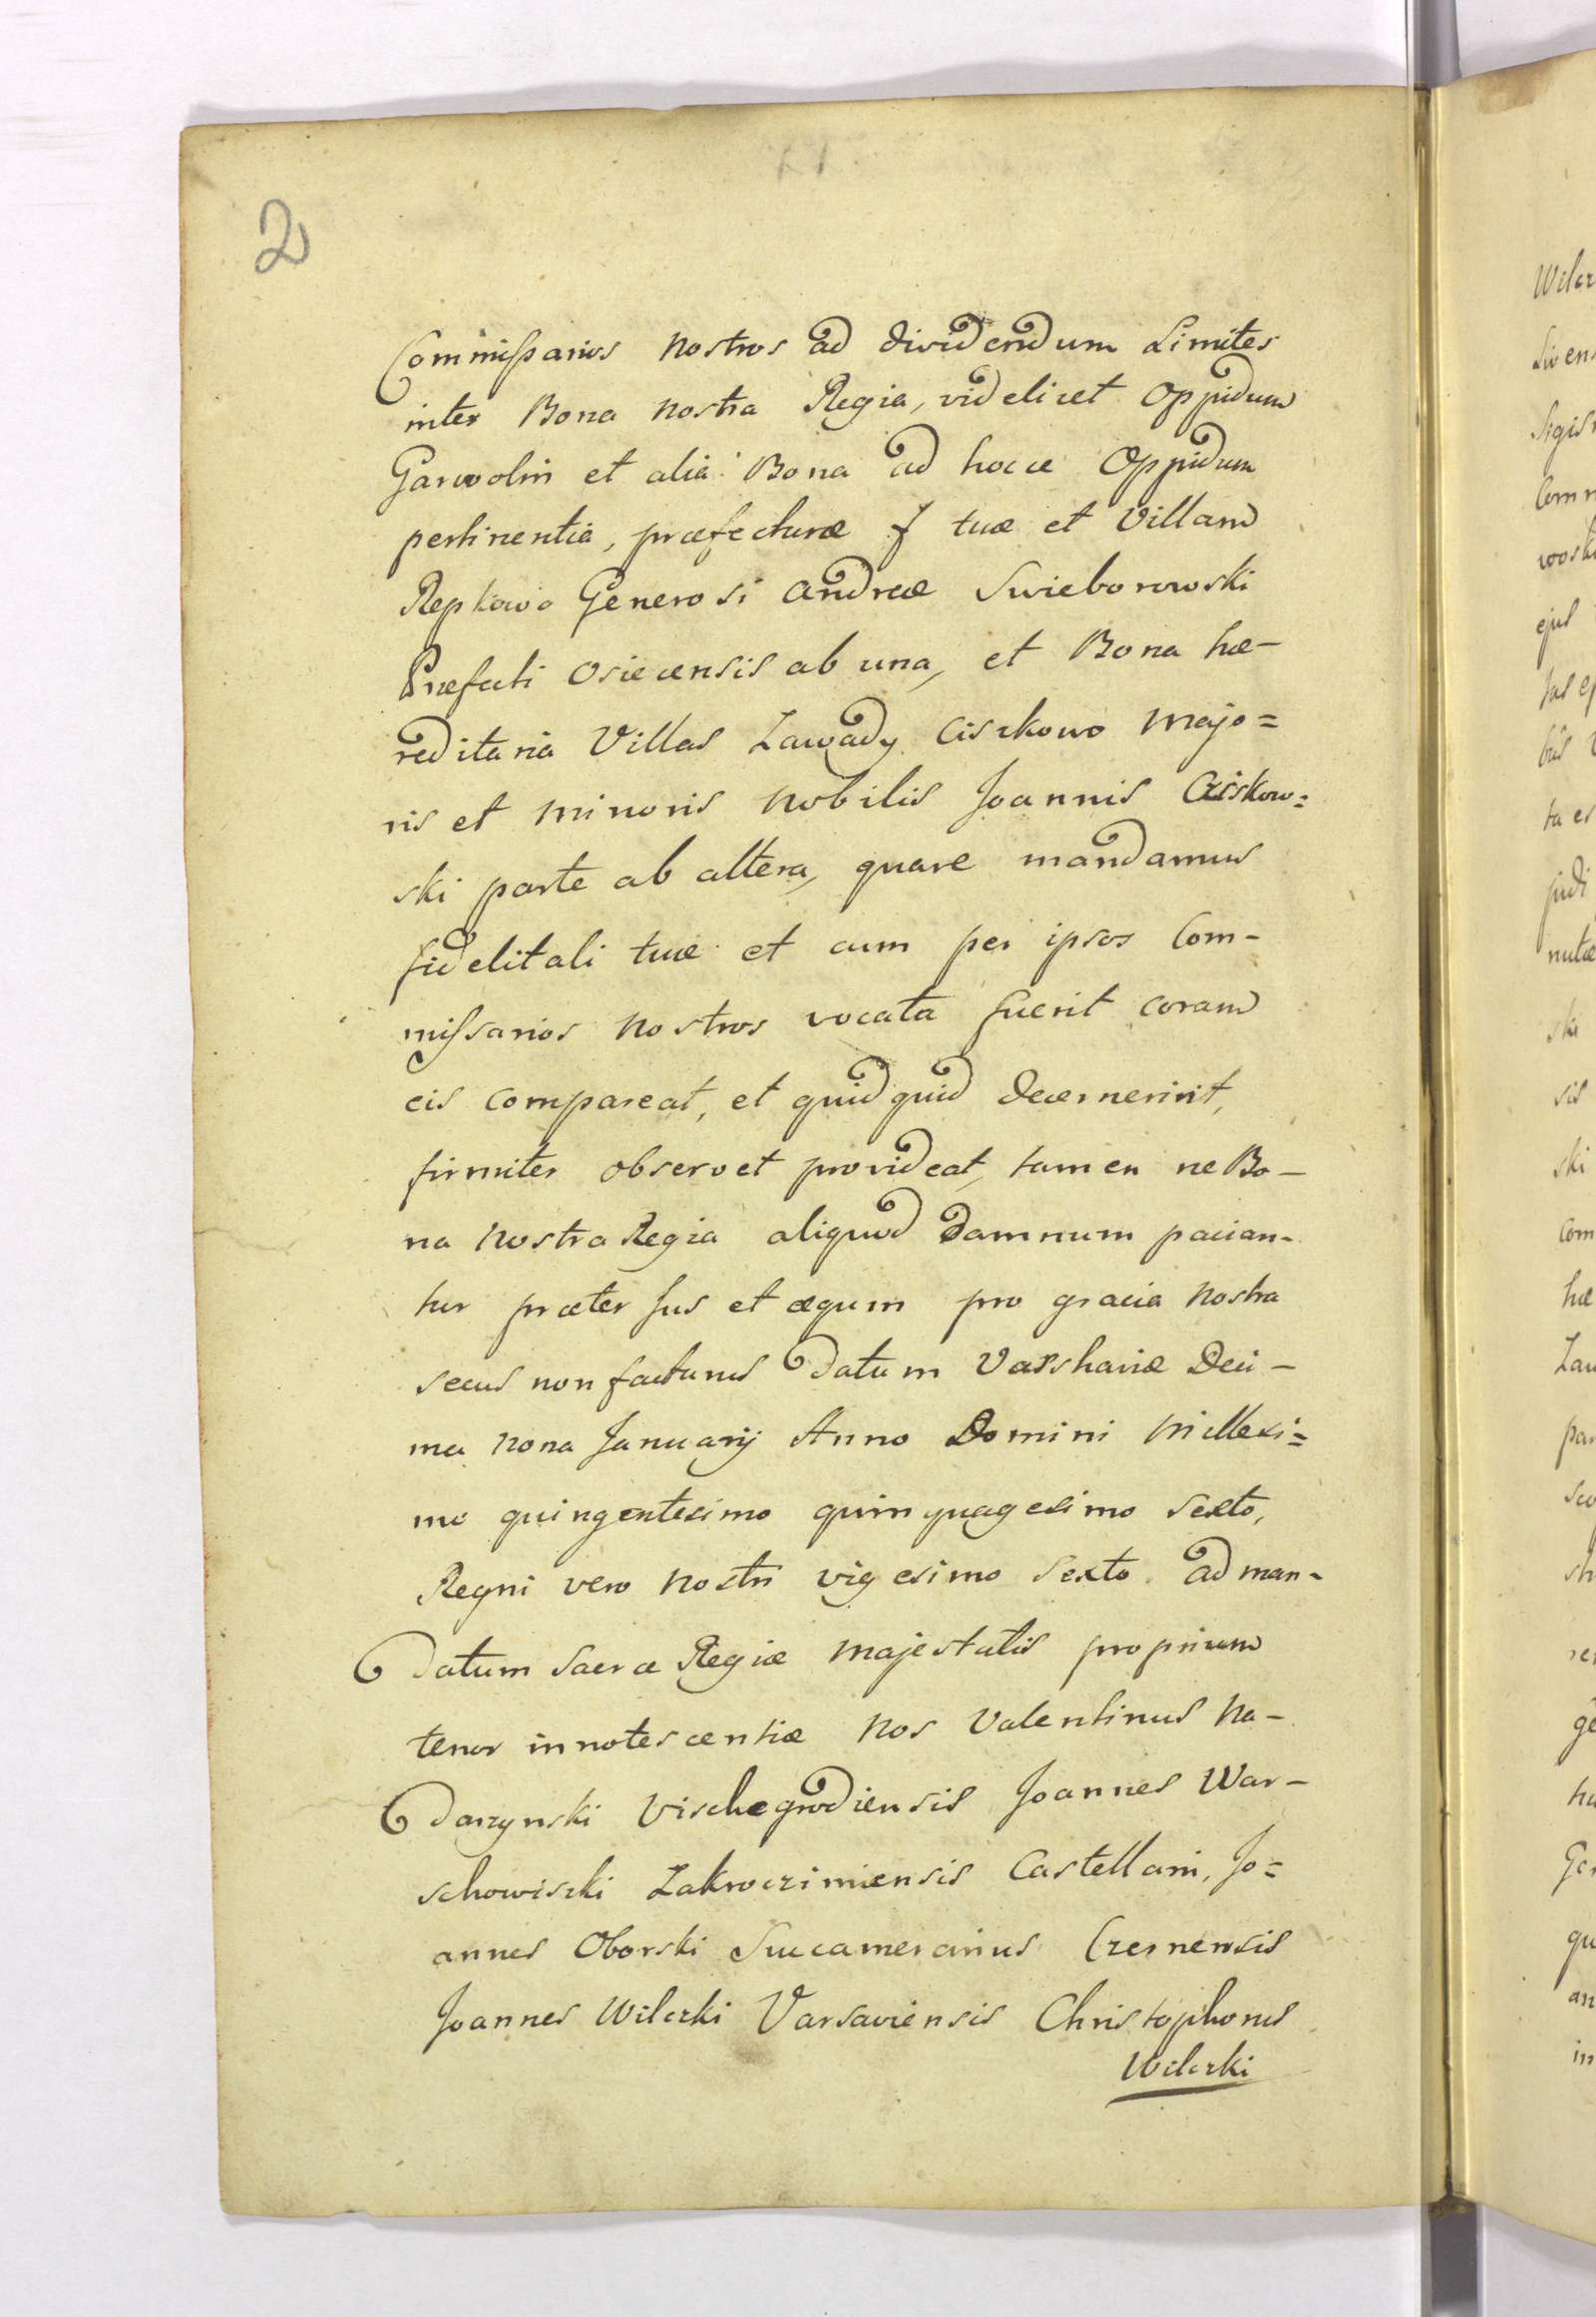 2
Commissarios nostros ad dividendum Limites
inter Bona nostra Regia, videlicet Oppidum
Garwolin et alia Bona ad hocce Oppidum
pertinentia, præfecturæ f tuæ et Villam
Repkowo Generosi Andreæ Swieborowski
Præfecti Osiecensis ab una, et Bona hæ-
reditaria Villas Zawady Ciszkowo Majo=
ris et minoris Nobilis Joannis Ciskow=
ski parte ab altera, quare mandamus
fidelitati tuæ et cum per ipsos Com-
missarios nostros vocata fuerit coram
eis compareat, et quidquid decernerint,
firmiter observet provideat, tamen ne Bo-
na Nostra Regia aliquod damnum pacian-
tur præter Jus et æqum pro gracia nostra
secus non facturus Datum Varshaviæ Deci-
ma nona Januarij Anno Domini Millesi=
mo quingentesimo quinquagesimo Sexto,
Regni vero Nostri vigesimo Sexto. ad man-
datum Sacræ Regiæ Majestatis proprium
tenor innotescentiæ Nos Valentinus Na-
darzynski Vischegrodiensis Joannes War-
schowiszki Zakroczimiensis Castellani, Jo=
annes Oborski Succamerarius Czernensis
Joannes Wilczki Varsaviensis Christophorus
Wilczki